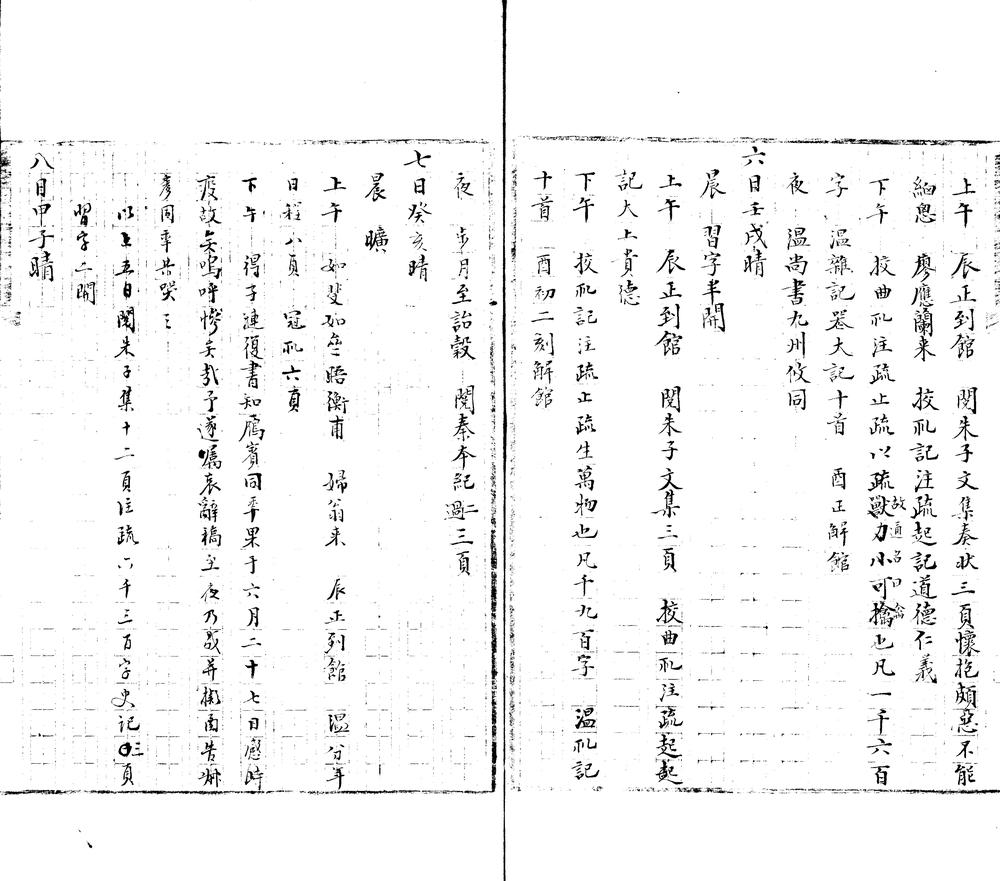 上午　辰正到館　閱朱子文集奏狀三頁懷抱頗惡不能
細思　廖應蘭来　挍礼記注疏起記道德仁義
下午　挍曲礼注疏止疏以疏獸力小可擒故通名曰禽也凡一千六百
字　温雜記喪大記十首　酉正解館
夜　温尚書九州攸同
六日壬戌晴
晨　習字半開
上午　辰正到館　閱朱子文集三頁　挍曲礼注疏起
記大上貴德
下午　挍礼記注疏止疏生萬物也凡千九百字　温礼記
十首　酉初二刻解館
夜　步月至詒穀　閱秦本紀二過三頁
七日癸亥晴
晨　曠
上午　如斐如　晤衡甫　婦翁来　辰正到館　温分年
日程八頁　冠礼六頁
下午　得子漣復書知鴈賓同年果于六月二十七日感時
疫故矣嗚呼慘矣哉予遂囑哀辭稿至夜乃　并
彥同年共哭之
以上五日閱朱子集十二頁注疏六千三百字史記三頁
習字二開
八日甲子晴